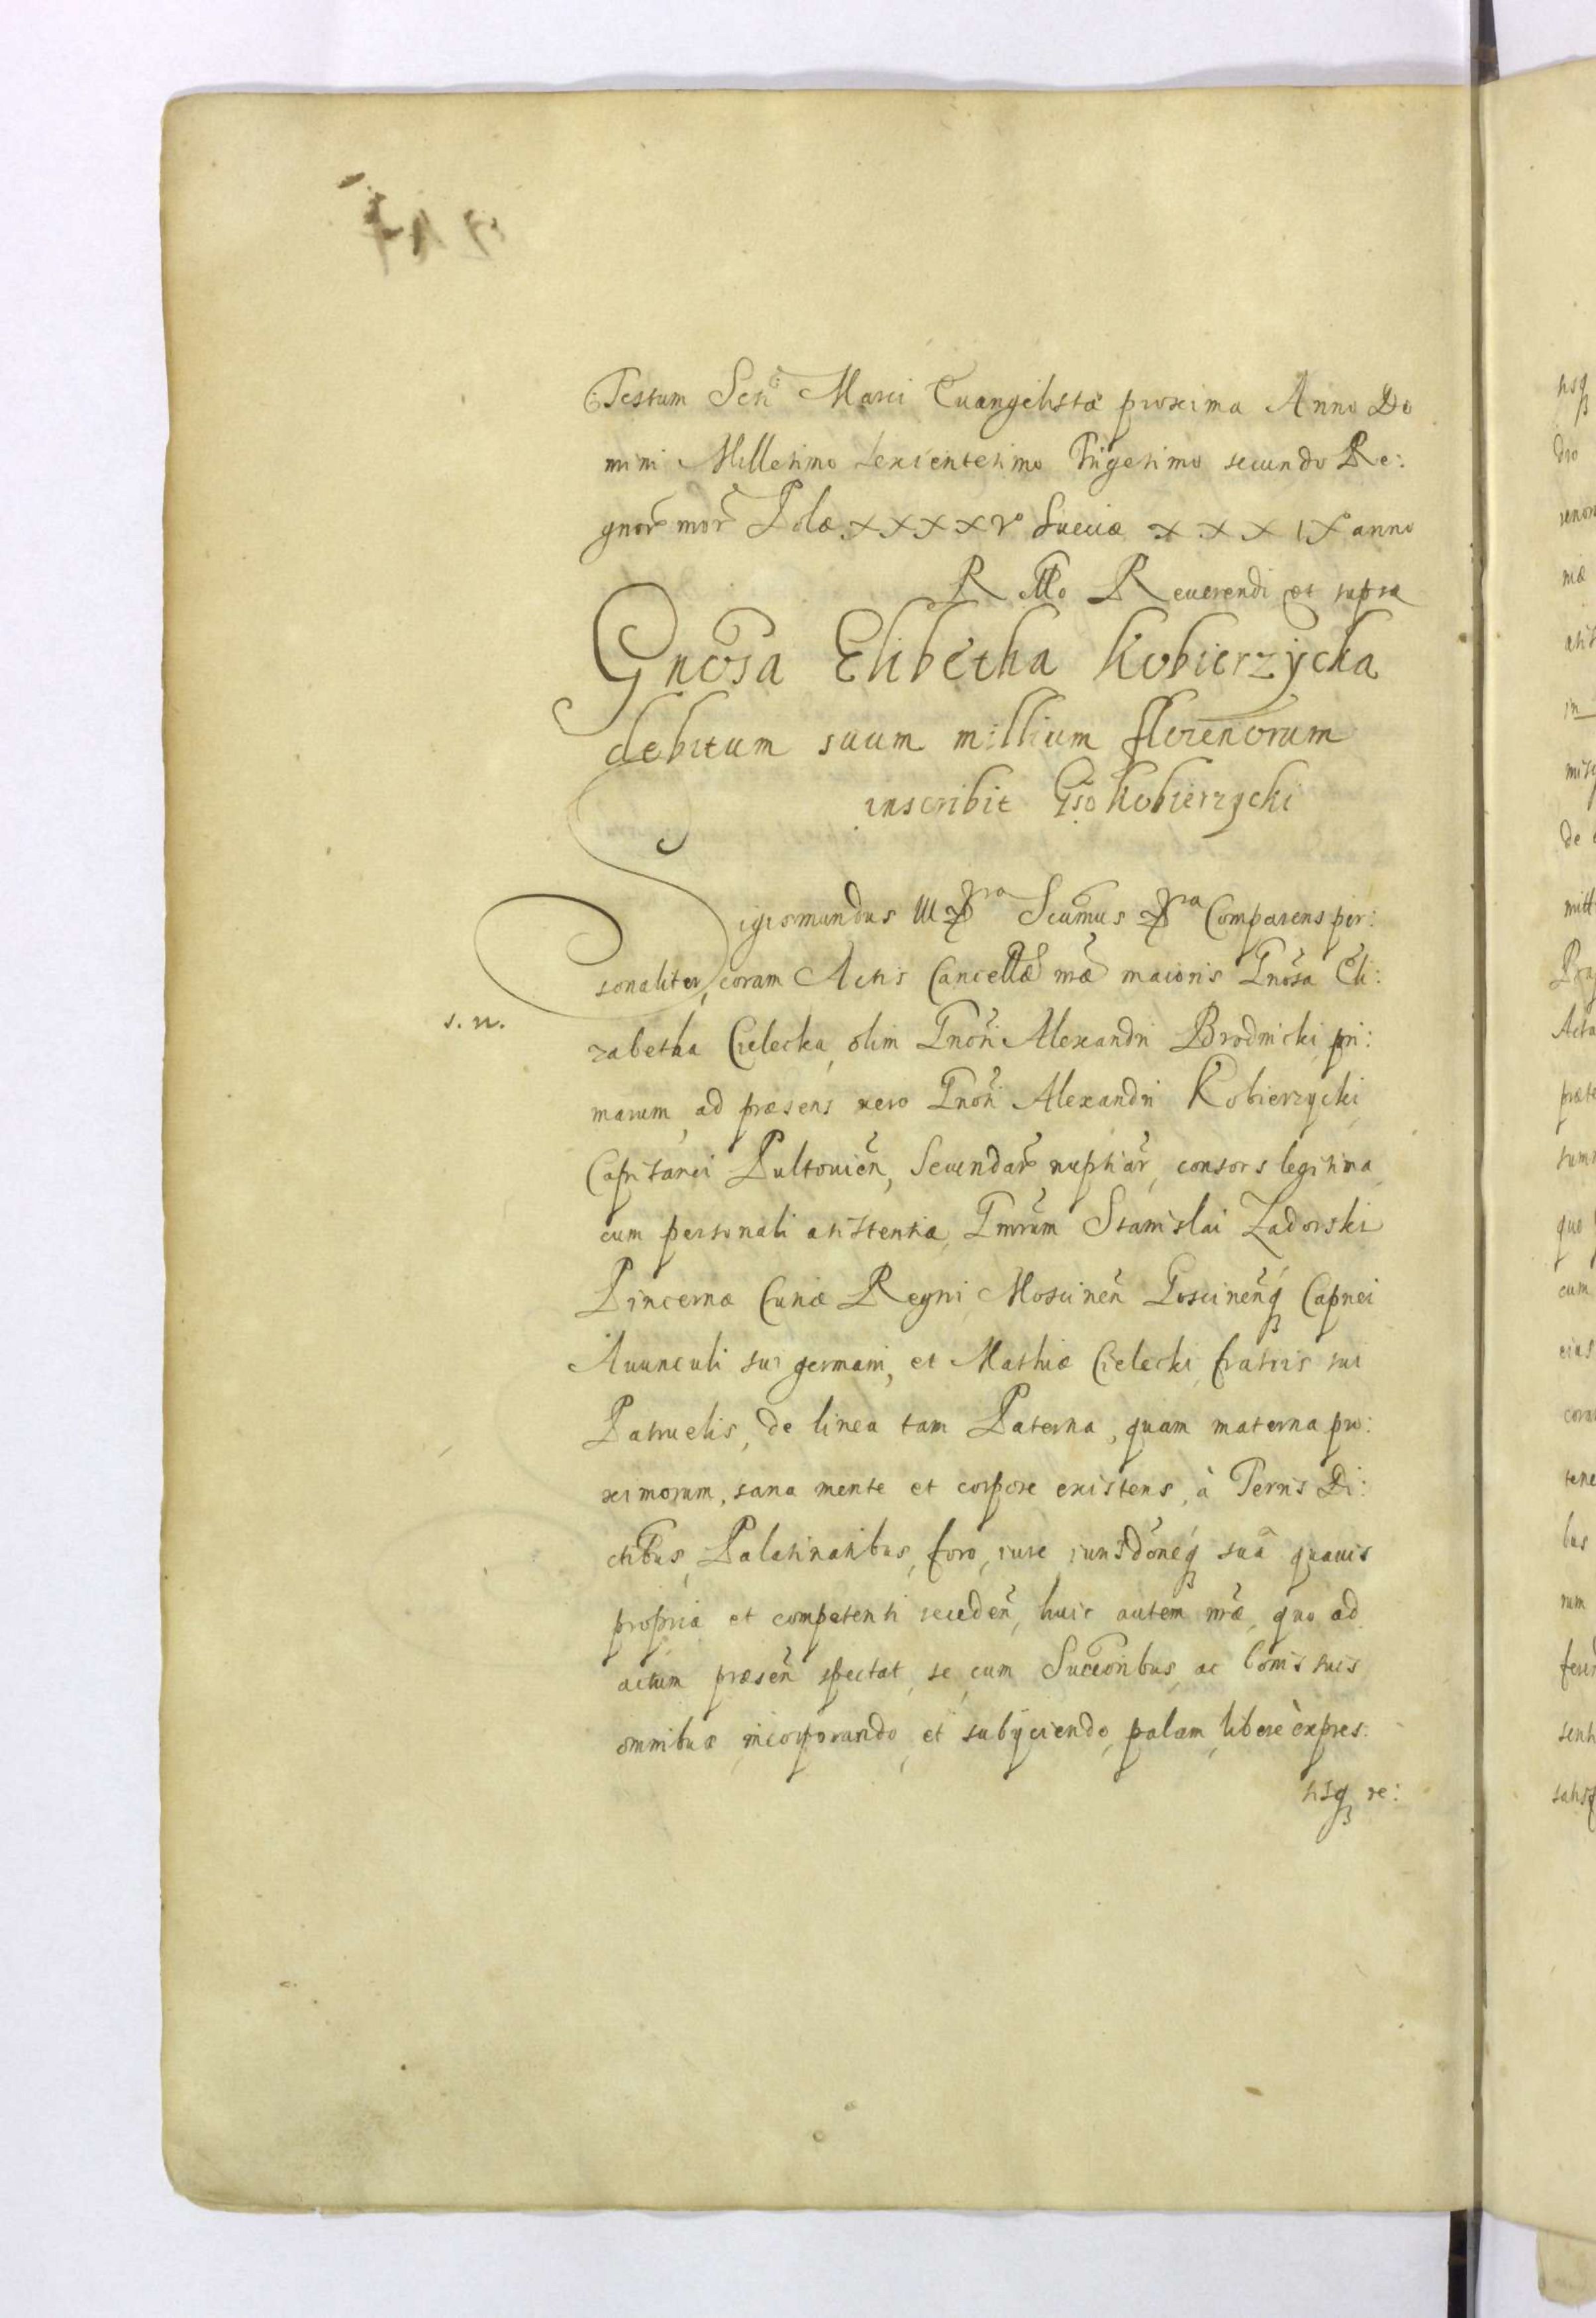 Festum Scti Marci Euangelistæ proxima Anno Do
mini Millesimo Sexcentesimo Trigesimo secundo Re:
gnor̃ mor̃ Polæ XXXXVº Sueciæ XXXIXº anno
R Illo Reuerendi et supra
Gnosa Elibetha Kobierzycka
debitum suum millium florenorum
inscribit Gso Kobierzycki
Sigismundus III Scimus Comparens per:
sonaliter, coram Actis Cancellæ mæ maioris Gnõsa Eli:
s. n.
zabetha Cielecka, olim Gnõsi Alexandri Brodnicki pri:
marum, ad præsens vero Gnõsi Alexandri Kobierzycki
Capitanei Pultouień, Secundar̃ nuptiar̃, consors legitima
cum personali assistentia, Gnrum Stanislai Zadorski
Pincernæ Curiæ Regni, Moscineñ Goscineñq Capnei
Auunculi sui germani, et Mathiæ Cielecki, fratris sui
Patruelis, de linea tam Paterna, quam materna pro:
ximorum, sana mente et corpore existens, à Terris Di:
ctibus, Palatinatibus, foro, iure iurisdõneq suã quauis
propria et competenti recedeñ, huic autem mæ, quo ad
actum præseñ spectat, se cum Succõribus, ac bonis suis
omnibus incorporando, et subijciendo, palam, libere expres:
sisq re: